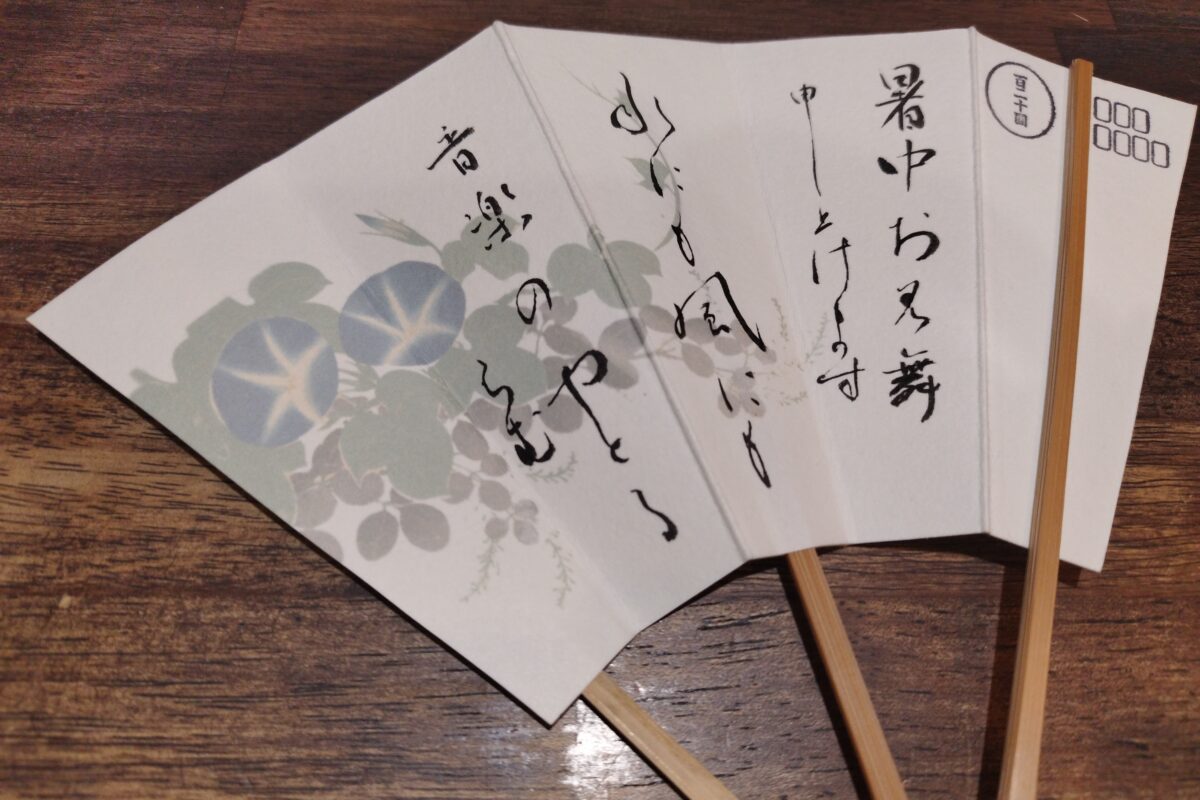 百二十圓
暑中お見舞
申し上けます
水にも風にも
音楽のやとる
らむ